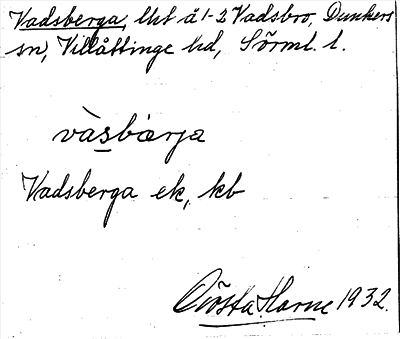 Vadsberga, lht å 1-2 Vadsbro, Dunkers
sn, Villåttinge hd, Sörml. l.
vàsbærja
Vadsberga ek, kb
Gösta Harne 1932.